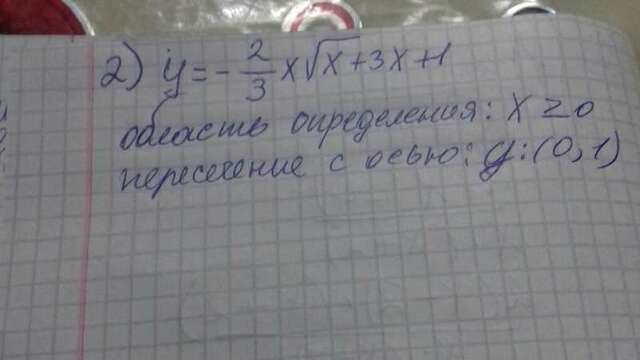 2) y = - 2/3 x√x + 3x + 1
область определения: x ≥ 0
пересечение с осью: y: (0, 1)